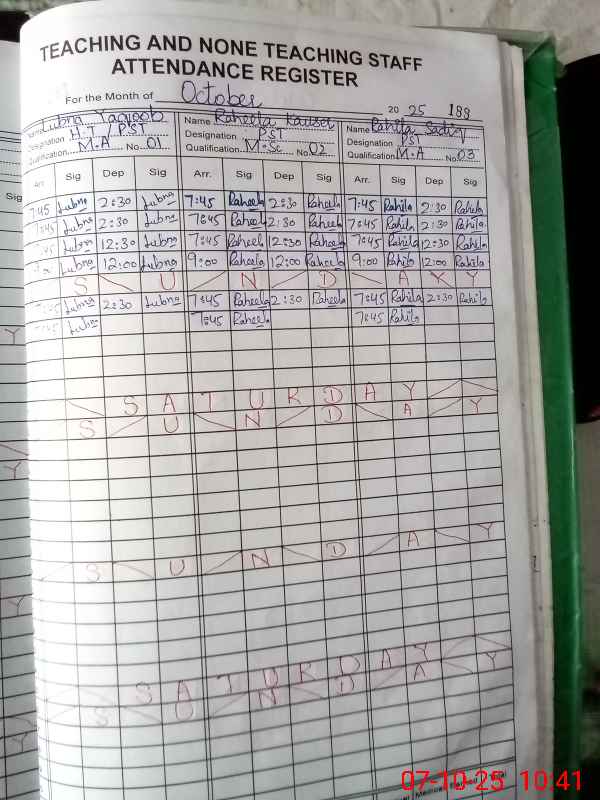 TEACHING AND NONE TEACHING STAFF
ATTENDANCE REGISTER
For the Month of October 2025 188
Name Lubna Yaqoob Name Raheela Kauser Name Rahila Sadiq
Designation H.T / PST Designation PST Designation PST
Qualification M.A No. 01 Qualification M.Sc No. 02 Qualification M.A No. 03
Sig Arr. Sig Dep Sig Arr. Sig Dep Sig Arr. Sig Dep Sig
7:45 Lubna 2:30 Lubna 7:45 Raheela 2:30 Raheela 7:45 Rahila 2:30 Rahila
7:45 Lubna 2:30 Lubna 7:45 Raheela 2:30 Raheela 7:45 Rahila 2:30 Rahila
:45 Lubna 12:30 Lubna 7:45 Raheela 12:30 Raheela 7:45 Rahila 12:30 Rahila
Lubna 12:00 Lubna 9:00 Raheela 12:00 Raheela 9:00 Rahila 12:00 Rahila
S U N D A Y Y
7:45 Lubna 2:30 Lubna 7:45 Raheela 2:30 Raheela 7:45 Rahila 2:30 Rahila
7:45 Lubna 7:45 Raheela 7:45 Rahila
Y
S A T U R D A Y
S U N D A Y
Y
S U N D A Y
Y
S A T U R D A Y
S U N D A Y
Y
07-10-25 10:41